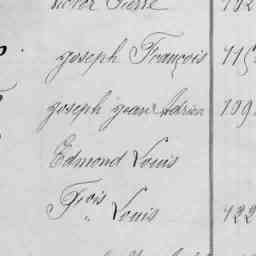 Victor Pierre 192
Joseph François 115
Joseph Jean Adrien 109
Edmond Louis
Fçois " Louis 122